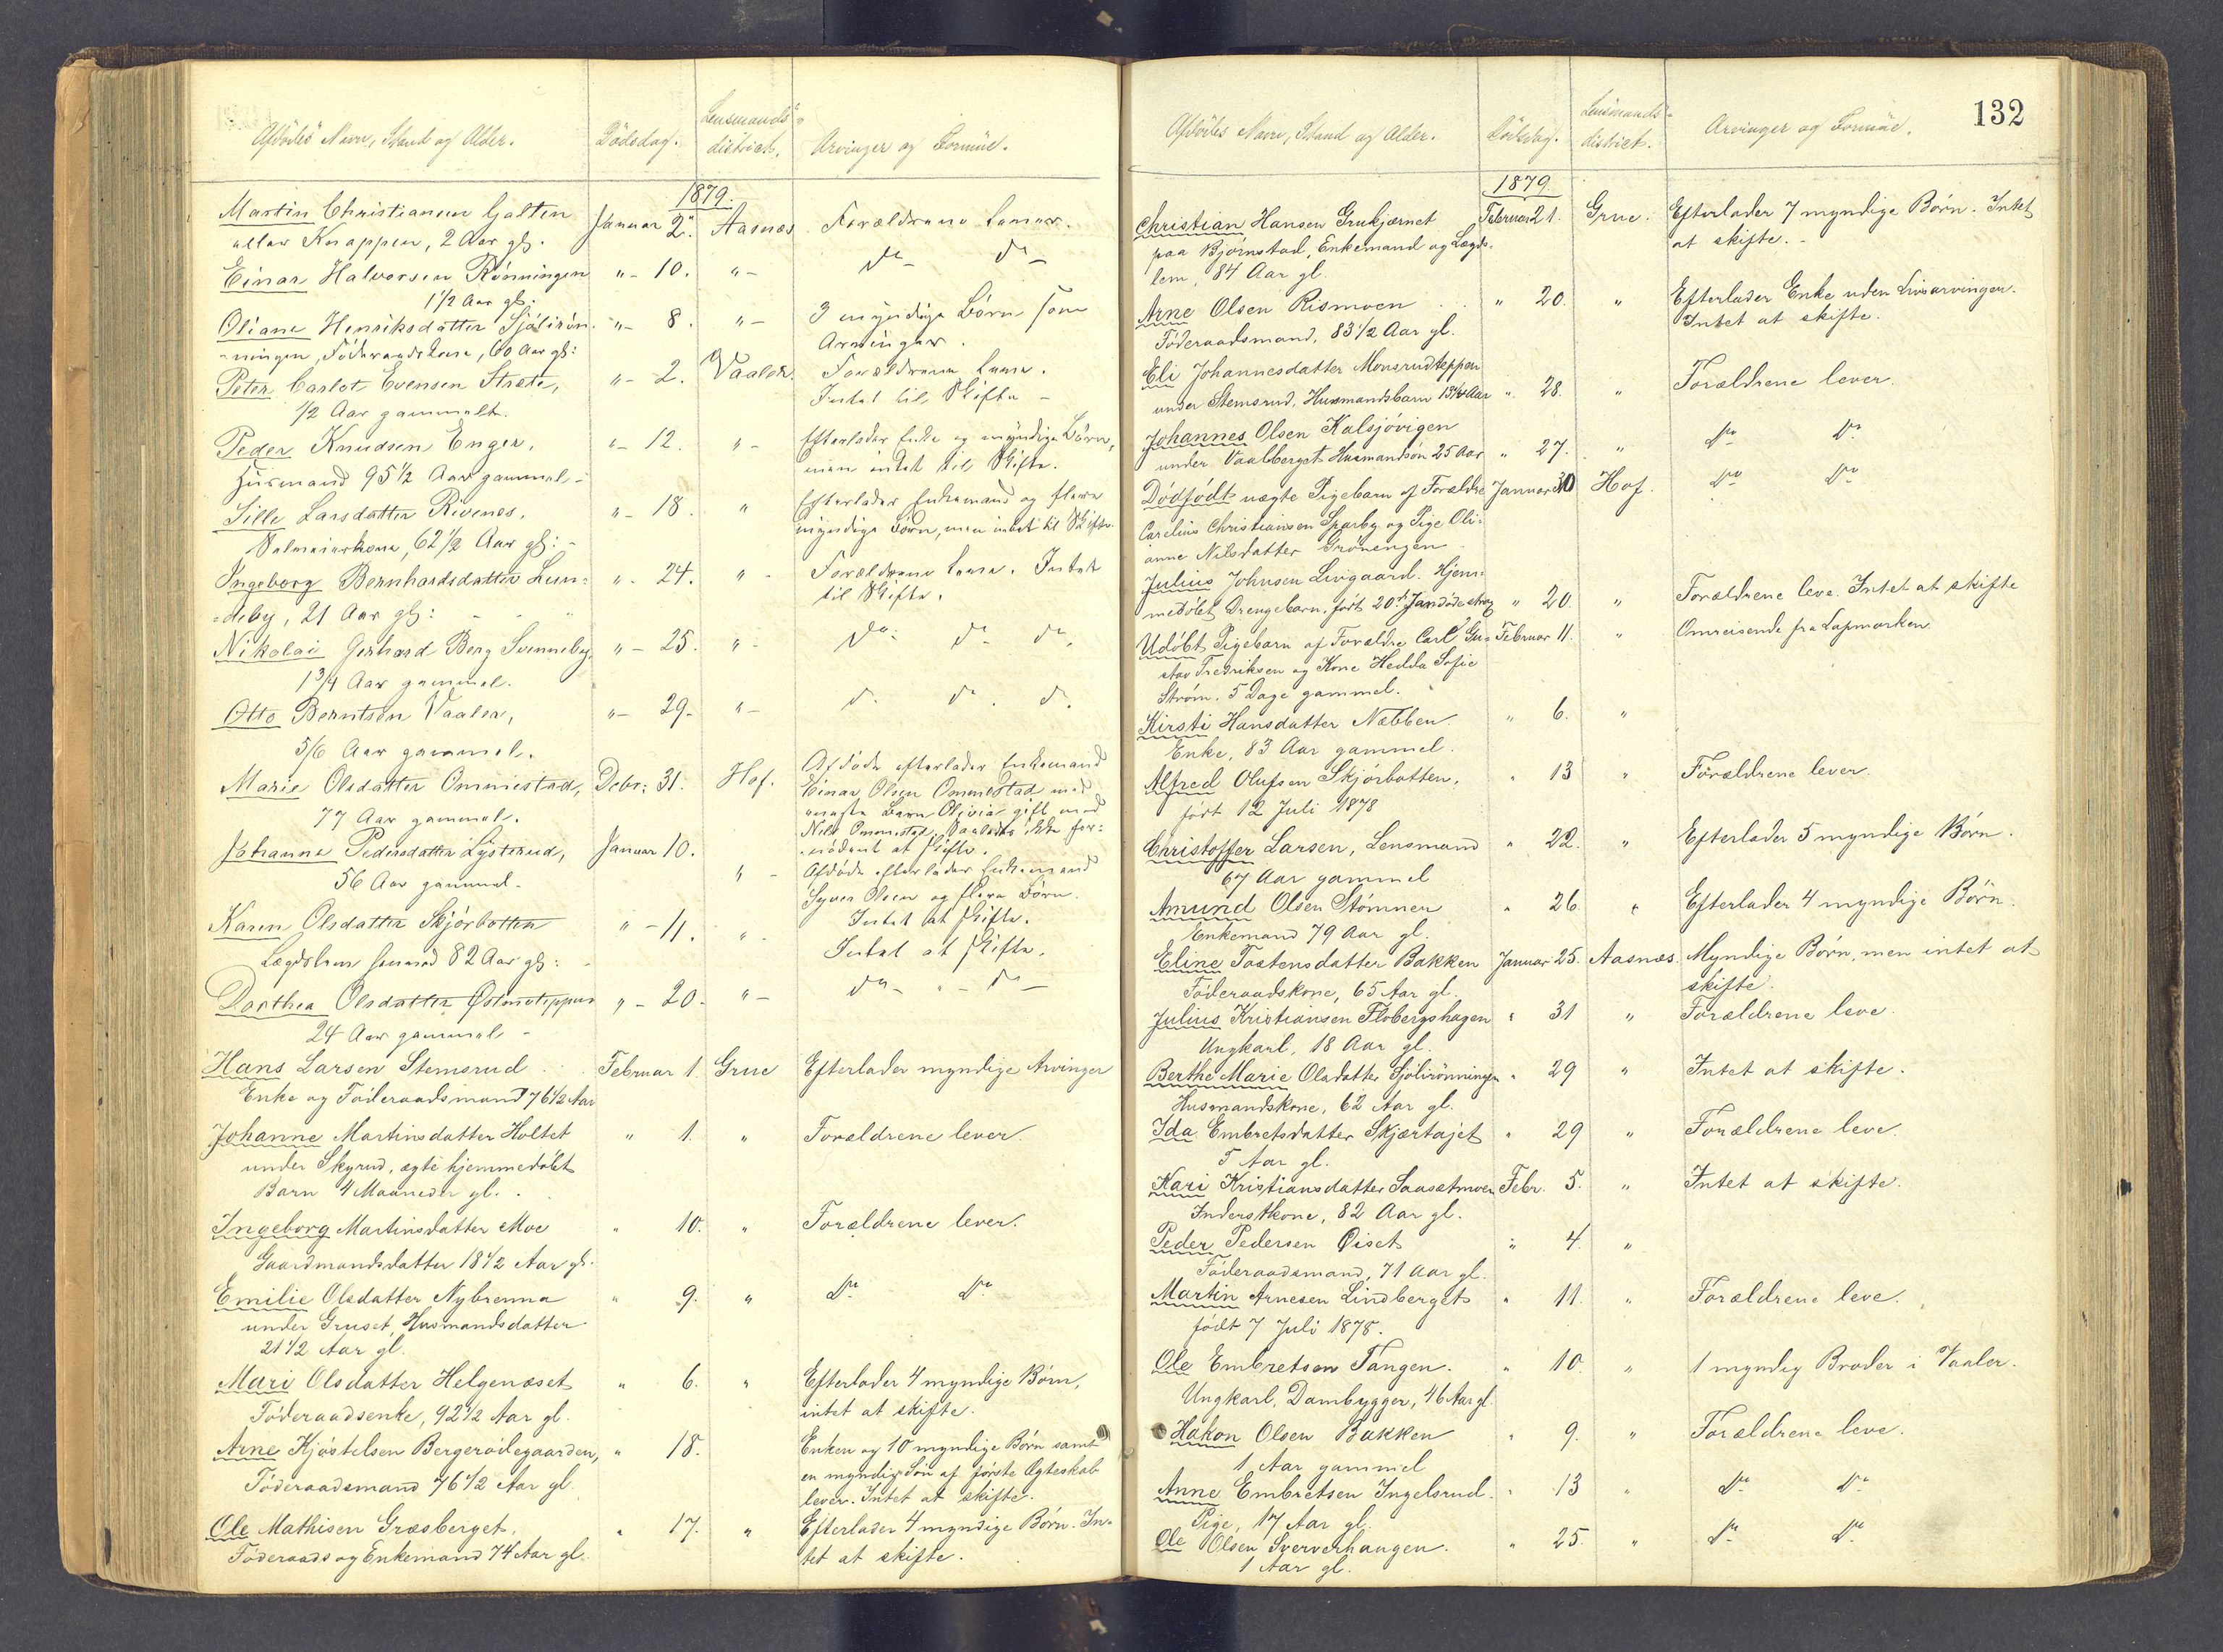 Afdødes Navn, Stand og Alder. Dødsdag. Lensmands-district. Arvinger og Formue.
1879.
Martin Christiansen Galten Januar 2. Aasnæs Forældrene lever.
eller Knappen, 2 Aar gl.
Einar Halvorsen Rønningen "- 10. "- Do Do
1 1/2 Aar gl.
Oliane Henriksdatter Sjølirøn- "- 8. "- 3 myndige Børn som
ningen, Føderaadskone, 60 Aar gl: Arvinger.
Peter Carlot Evensen Stræte, "- 2. Vaaler. Forældrene leve.
1/2 Aar gammelt. Intet til Skifte -
Peder Knudsen Enger, "- 12. "- Efterlader Enke og myndige Børn,
Husmand 95 1/2 Aar gammel- men intet til Skifte.
Sille Larsdatter Rivenes, "- 18. " Efterlader Enkemand og flere
62 1/2 Aar gl:- myndige Børn, men intet til Skifte.
Ingeborg Bernhardsdatter Lun- "- 24. " - Forældrene leve. Intet
deby, 21 Aar gl: til Skifte.
Nikolai Gerhard Berg Svenneby, "- 25. "- Do Do Do
1 3/4 Aar gammel.
Otto Berntsen Vaaler, "- 29. "- Do Do Do
5/6 Aar gammel.
Marie Olsdatter Ommestad, Debr: 31. Hof. Afdøde efterlader Enkemand
77 Aar gammel. Einar Olsen Ommestad med
eneste Barn Olivia gift med
Nils Ommestad. ikke for-
nødent at skifte.
Johanne Pedersdatter Lysterud, Januar 10. " - Afdøde efterlader Enkemand
56 Aar gammel. Syver Olsen og flere Børn.
Intet at skifte.
Karen Olsdatter Skjørbotten "- 11. "- Intet at skifte.
Lægdslem 82 Aar gl:
Dorthea Olsdatter Østmoteppen "- 20. "- Do " - Do
24 Aar gammel -
Hans Larsen Stemsrud Februar 1. Grue Efterlader myndige Arvinger
Enke og Føderaadsmand 76 1/2 Aar
Johanne Martinsdatter Holtet " 1. " Forældrene lever.
under Skyrud, ægte hjemmedøbt
Barn 4 Maaneder gl.
Ingeborg Martinsdatter Moe " 10. " Forældrene lever.
Gaardmandsdatter 18 1/2 Aar gl.
Emilie Olsdatter Nybrenna " 9. " Do Do
under Gruset, Husmandsdatter
21 1/2 Aar gl.
Mari Olsdatter Helgenæset " 6. " Efterlader 4 myndige Børn,
Føderaadsenke, 92 1/2 Aar gl. intet at skifte.
Arne Kjøstelsen Bergerødegaarden, " 18. Enken og 10 myndige Børn samt
Føderaadsmand 76 1/2 Aar gl. en myndig Søn af første Ægteskab
lever. Intet at skifte.
Ole Mathisen Græsberget, " 17. " Efterlader 4 myndige Børn. In-
Føderaads og Enkemand 74 Aar gl. tet at skifte.
132
Afdødes Navn, Stand og Alder. Dødsdag. Lensmands-district. Arvinger og Formue.
1879.
Christian Hansen Grukjærnet Februar 21. Grue. Efterlader 7 myndige Børn. Intet
paa Bjørnstad, Enkemand og Lægds- at skifte. -
lem, 84 Aar gl.
Arne Olsen Rismoen " 20. " Efterlader Enke uden Livsarvinger.
Føderaadsmand, 83 1/2 Aar gl. Intet at skifte.
Eli Johannesdatter Monsrudteppen
under Stemsrud, Husmandsbarn 13 1/4 Aar " 28. " Forældrene lever.
Johannes Olsen Kalsjøvigen
under Vaalberget Husmandsøn 25 Aar " 27. " Do Do
Dødfødt uægte Pigebarn af Forældre Januar 30 Hof. Do Do
Carelius Christiansen Sparby og Pige Oli-
anne Nilsdatter Grønengen
Julius Johnsen Livgaard. Hjem-
medøbt Drengebarn, født 20de Jan døde strax " 20. " Forældrene leve. Intet at skifte
Udøbt Pigebarn af Forældre Carl Gu- Februar 11. " Omreisende fra Lapmarken
stav Fredriksen og Kone Hedda Sofie
Strøm, 5 Dage gammel.
Kirsti Hansdatter Næbben " 6. "
Enke, 83 Aar gammel.
Alfred Olufsen Skjørbotten, " 13 " Forældrene lever.
født 12 Juli 1878
Christoffer Larsen, Lensmand " 22. " Efterlader 5 myndige Børn.
67 Aar gammel
Amund Olsen Stømner " 26. " Efterlader 4 myndige Børn.
Enkemand 79 Aar gl.
Eline Tostensdatter Bakken Januar 25. Aasnæs. Myndige Børn, men intet at
Føderaadskone, 65 Aar gl. skifte.
Julius Kristiansen Flobergshagen " 31 " Forældrene leve.
Ungkarl, 18 Aar gl.
Berthe Marie Olsdatter Sjølirønningen " 29 " Intet at skifte.
Husmandskone, 62 Aar gl.
Ida Embretsdatter Skjærtajet " 29 " Forældrene leve.
5 Aar gl.
Kari Kristiansdatter Saasætmoen Febr. 5. " Intet at skifte.
Inderstkone, 82 Aar gl.
Peder Pedersen Øiset " 4. "
Føderaadsmand, 71 Aar gl.
Martin Arnesen Lindberget " 11. " Forældrene leve.
født 7 Juli 1878.
Ole Embretsen Tangen. " 10. " 1 myndig Broder i Vaaler.
Ungkarl, Dambygger, 46 Aar gl.
Hakon Olsen Bakken " 9. " Forældrene leve.
1 Aar gammel
Anne Embretsen Ingelsrud. " 13 " Do Do
Pige, 17 Aar gl.
Ole Olsen Sververhaugen. " 25. " Do Do
1 Aar gl.